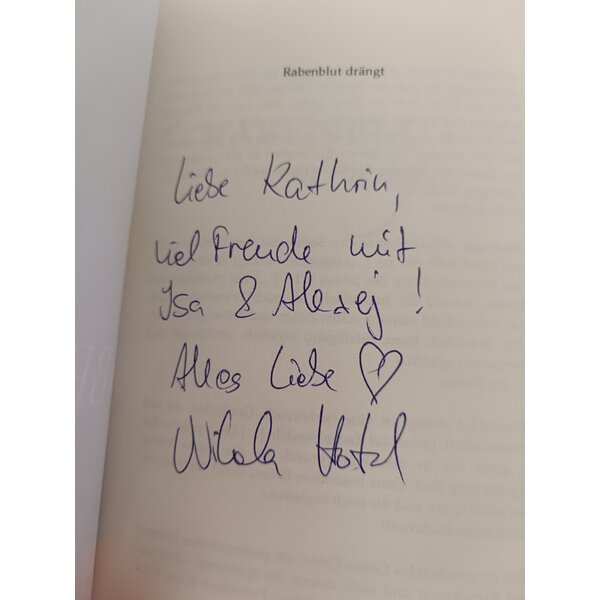 Rabenblut drängt
Liebe Kathrin,
viel Freude mit
Isa & Alexej!
Alles Liebe ♡
Nikola Hotel